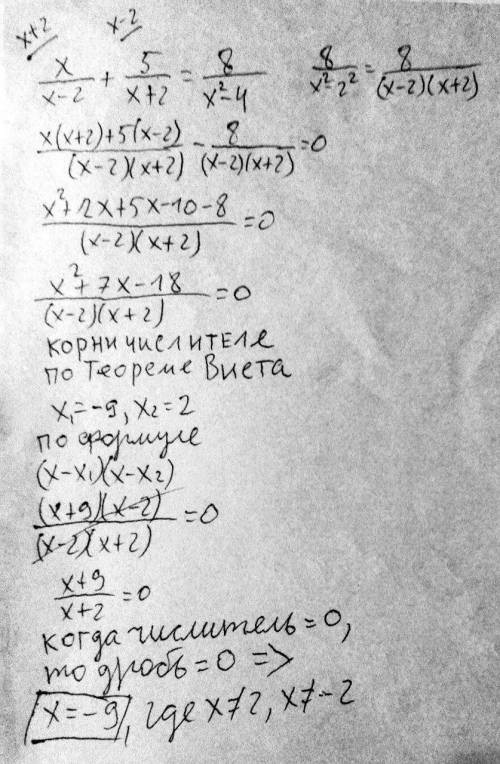 x+2 x-2
x/(x-2) + 5/(x+2) = 8/(x²-4) 8/(x²-2²) = 8/((x-2)(x+2))
(x(x+2)+5(x-2))/((x-2)(x+2)) - 8/((x-2)(x+2)) = 0
(x²+2x+5x-10-8)/((x-2)(x+2)) = 0
(x²+7x-18)/((x-2)(x+2)) = 0
корни числителя
по Теореме Виета
x₁=-9, x₂=2
по формуле
(x-x₁)(x-x₂)
((x+9)(x-2))/((x-2)(x+2)) = 0
(x+9)/(x+2) = 0
когда числитель=0,
то дробь=0 =>
x=-9, где x≠2, x≠-2